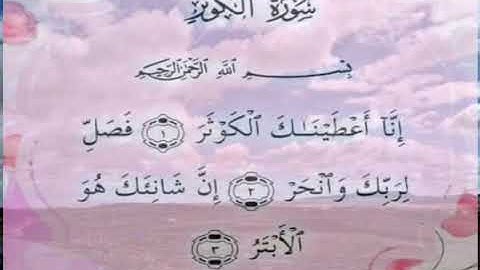 سُورَةُ الكَوْثَرِ
بِسْمِ اللَّهِ الرَّحْمَٰنِ الرَّحِيمِ
إِنَّآ أَعْطَيْنَـٰكَ ٱلْكَوْثَرَ ١ فَصَلِّ
لِرَبِّكَ وَٱنْحَرْ ٢ إِنَّ شَانِئَكَ هُوَ
ٱلْأَبْتَرُ ٣